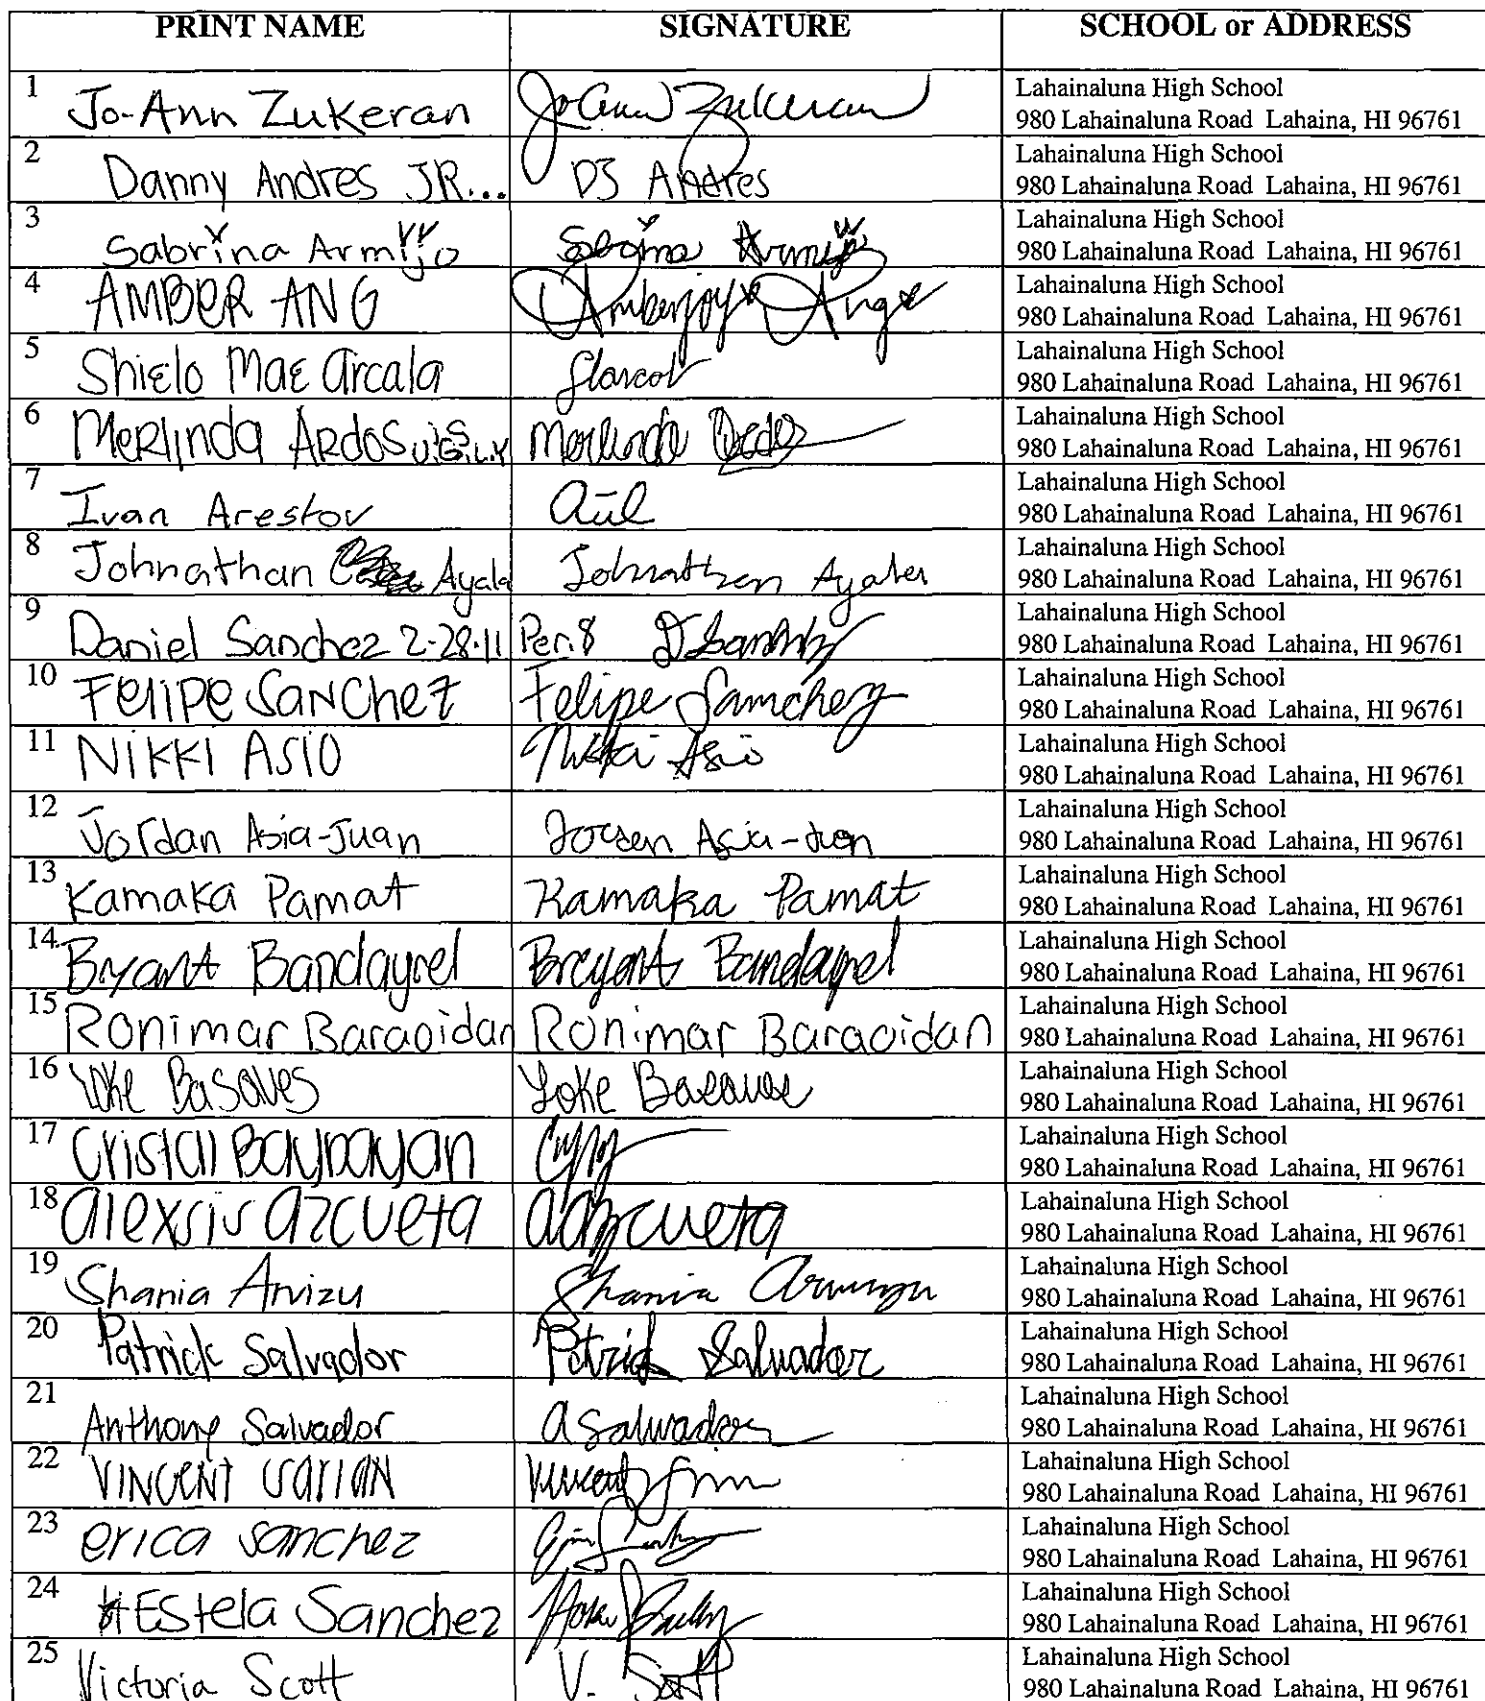 PRINT NAME SIGNATURE SCHOOL or ADDRESS
1 Jo-Ann Zukeran JoAnn Zukeran Lahainaluna High School
980 Lahainaluna Road Lahaina, HI 96761
2 Danny Andres JR... DJ Andres Lahainaluna High School
980 Lahainaluna Road Lahaina, HI 96761
3 Sabrina Armijo Sabrina Armijo Lahainaluna High School
980 Lahainaluna Road Lahaina, HI 96761
4 AMBER ANG Amberjoy Ang Lahainaluna High School
980 Lahainaluna Road Lahaina, HI 96761
5 Shielo Mae Arcala Lahainaluna High School
980 Lahainaluna Road Lahaina, HI 96761
6 Merlinda Ardos Merlinda Lahainaluna High School
980 Lahainaluna Road Lahaina, HI 96761
7 Ivan Arestov Lahainaluna High School
980 Lahainaluna Road Lahaina, HI 96761
8 Johnathan Ayala Johnathan Ayala Lahainaluna High School
980 Lahainaluna Road Lahaina, HI 96761
9 Daniel Sanchez 2-28-11 Per. 8 Lahainaluna High School
980 Lahainaluna Road Lahaina, HI 96761
10 Felipe Sanchez Felipe Sanchez Lahainaluna High School
980 Lahainaluna Road Lahaina, HI 96761
11 NIKKI ASIO Nikki Asio Lahainaluna High School
980 Lahainaluna Road Lahaina, HI 96761
12 Jordan Asia-Juan Jordan Asia-Juan Lahainaluna High School
980 Lahainaluna Road Lahaina, HI 96761
13 Kamaka Pamat Kamaka Pamat Lahainaluna High School
980 Lahainaluna Road Lahaina, HI 96761
14 Bryant Bandayrel Bryant Bandayrel Lahainaluna High School
980 Lahainaluna Road Lahaina, HI 96761
15 Ronimar Baraoidan Ronimar Baraoidan Lahainaluna High School
980 Lahainaluna Road Lahaina, HI 96761
16 Loke Basaves Loke Basaves Lahainaluna High School
980 Lahainaluna Road Lahaina, HI 96761
17 Cristal Baybayan Lahainaluna High School
980 Lahainaluna Road Lahaina, HI 96761
18 alexsis azcueta aazcueta Lahainaluna High School
980 Lahainaluna Road Lahaina, HI 96761
19 Shania Arvizu Shania Lahainaluna High School
980 Lahainaluna Road Lahaina, HI 96761
20 Patrick Salvador Patrick Salvador Lahainaluna High School
980 Lahainaluna Road Lahaina, HI 96761
21 Anthony Salvador A Salvador Lahainaluna High School
980 Lahainaluna Road Lahaina, HI 96761
22 VINCENT Vincent Lahainaluna High School
980 Lahainaluna Road Lahaina, HI 96761
23 erica sanchez Lahainaluna High School
980 Lahainaluna Road Lahaina, HI 96761
24 Estela Sanchez Lahainaluna High School
980 Lahainaluna Road Lahaina, HI 96761
25 Victoria Scott V. Scott Lahainaluna High School
980 Lahainaluna Road Lahaina, HI 96761